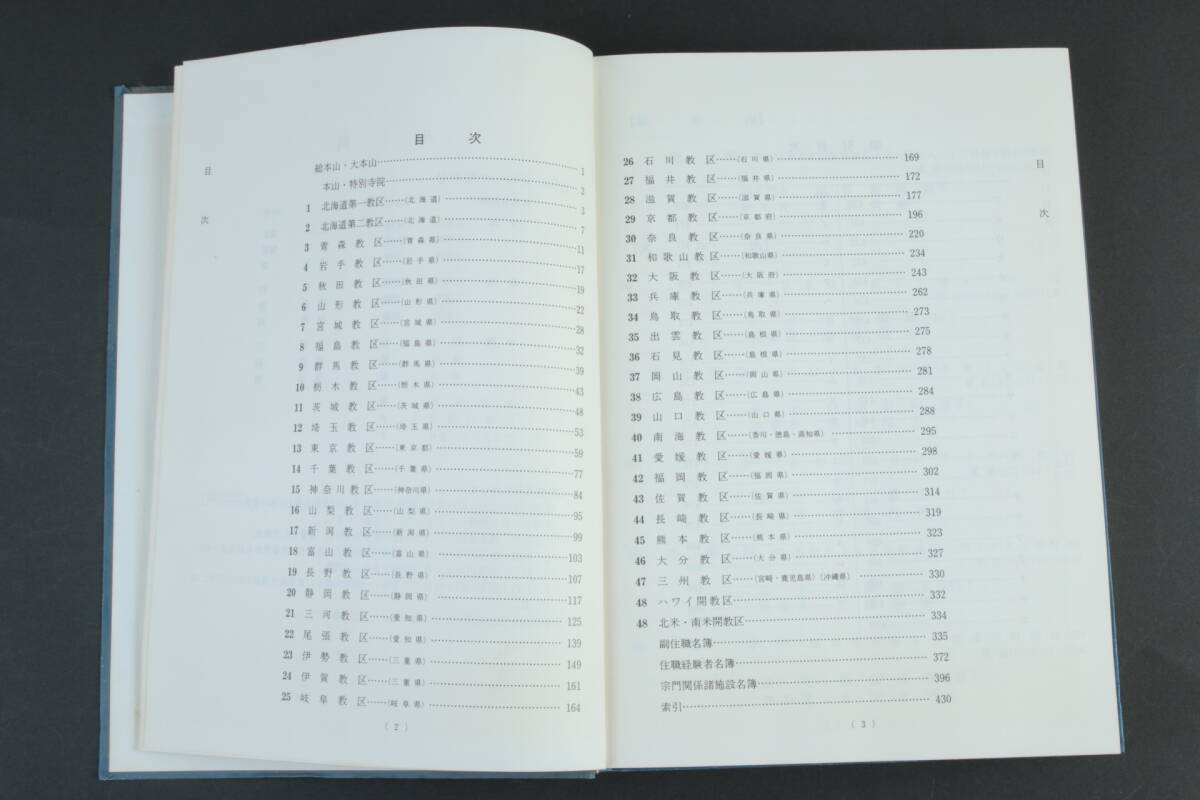 目次
目　次
総本山・大本山……1
本山・特別寺院……2
1 北海道第一教区……(北海道)……3
2 北海道第二教区……(北海道)……7
3 青森教区……(青森県)……11
4 岩手教区……(岩手県)……17
5 秋田教区……(秋田県)……19
6 山形教区……(山形県)……22
7 宮城教区……(宮城県)……28
8 福島教区……(福島県)……32
9 群馬教区……(群馬県)……39
10 栃木教区……(栃木県)……43
11 茨城教区……(茨城県)……48
12 埼玉教区……(埼玉県)……53
13 東京教区……(東京都)……59
14 千葉教区……(千葉県)……77
15 神奈川教区……(神奈川県)……84
16 山梨教区……(山梨県)……95
17 新潟教区……(新潟県)……99
18 富山教区……(富山県)……103
19 長野教区……(長野県)……107
20 静岡教区……(静岡県)……117
21 三河教区……(愛知県)……125
22 尾張教区……(愛知県)……139
23 伊勢教区……(三重県)……149
24 伊賀教区……(三重県)……161
25 岐阜教区……(岐阜県)……164
(2)
26 石川教区……(石川県)……169
27 福井教区……(福井県)……172
28 滋賀教区……(滋賀県)……177
29 京都教区……(京都府)……196
30 奈良教区……(奈良県)……220
31 和歌山教区……(和歌山県)……234
32 大阪教区……(大阪府)……243
33 兵庫教区……(兵庫県)……262
34 鳥取教区……(鳥取県)……273
35 出雲教区……(島根県)……275
36 石見教区……(島根県)……278
37 岡山教区……(岡山県)……281
38 広島教区……(広島県)……284
39 山口教区……(山口県)……288
40 南海教区……(香川・徳島・高知県)……295
41 愛媛教区……(愛媛県)……298
42 福岡教区……(福岡県)……302
43 佐賀教区……(佐賀県)……314
44 長崎教区……(長崎県)……319
45 熊本教区……(熊本県)……323
46 大分教区……(大分県)……327
47 三州教区……(宮崎・鹿児島県)(沖縄県)……330
48 ハワイ開教区……332
48 北米・南米開教区……334
副住職名簿……335
住職経験者名簿……372
宗門関係諸施設名簿……396
索引……430
(3)
目次